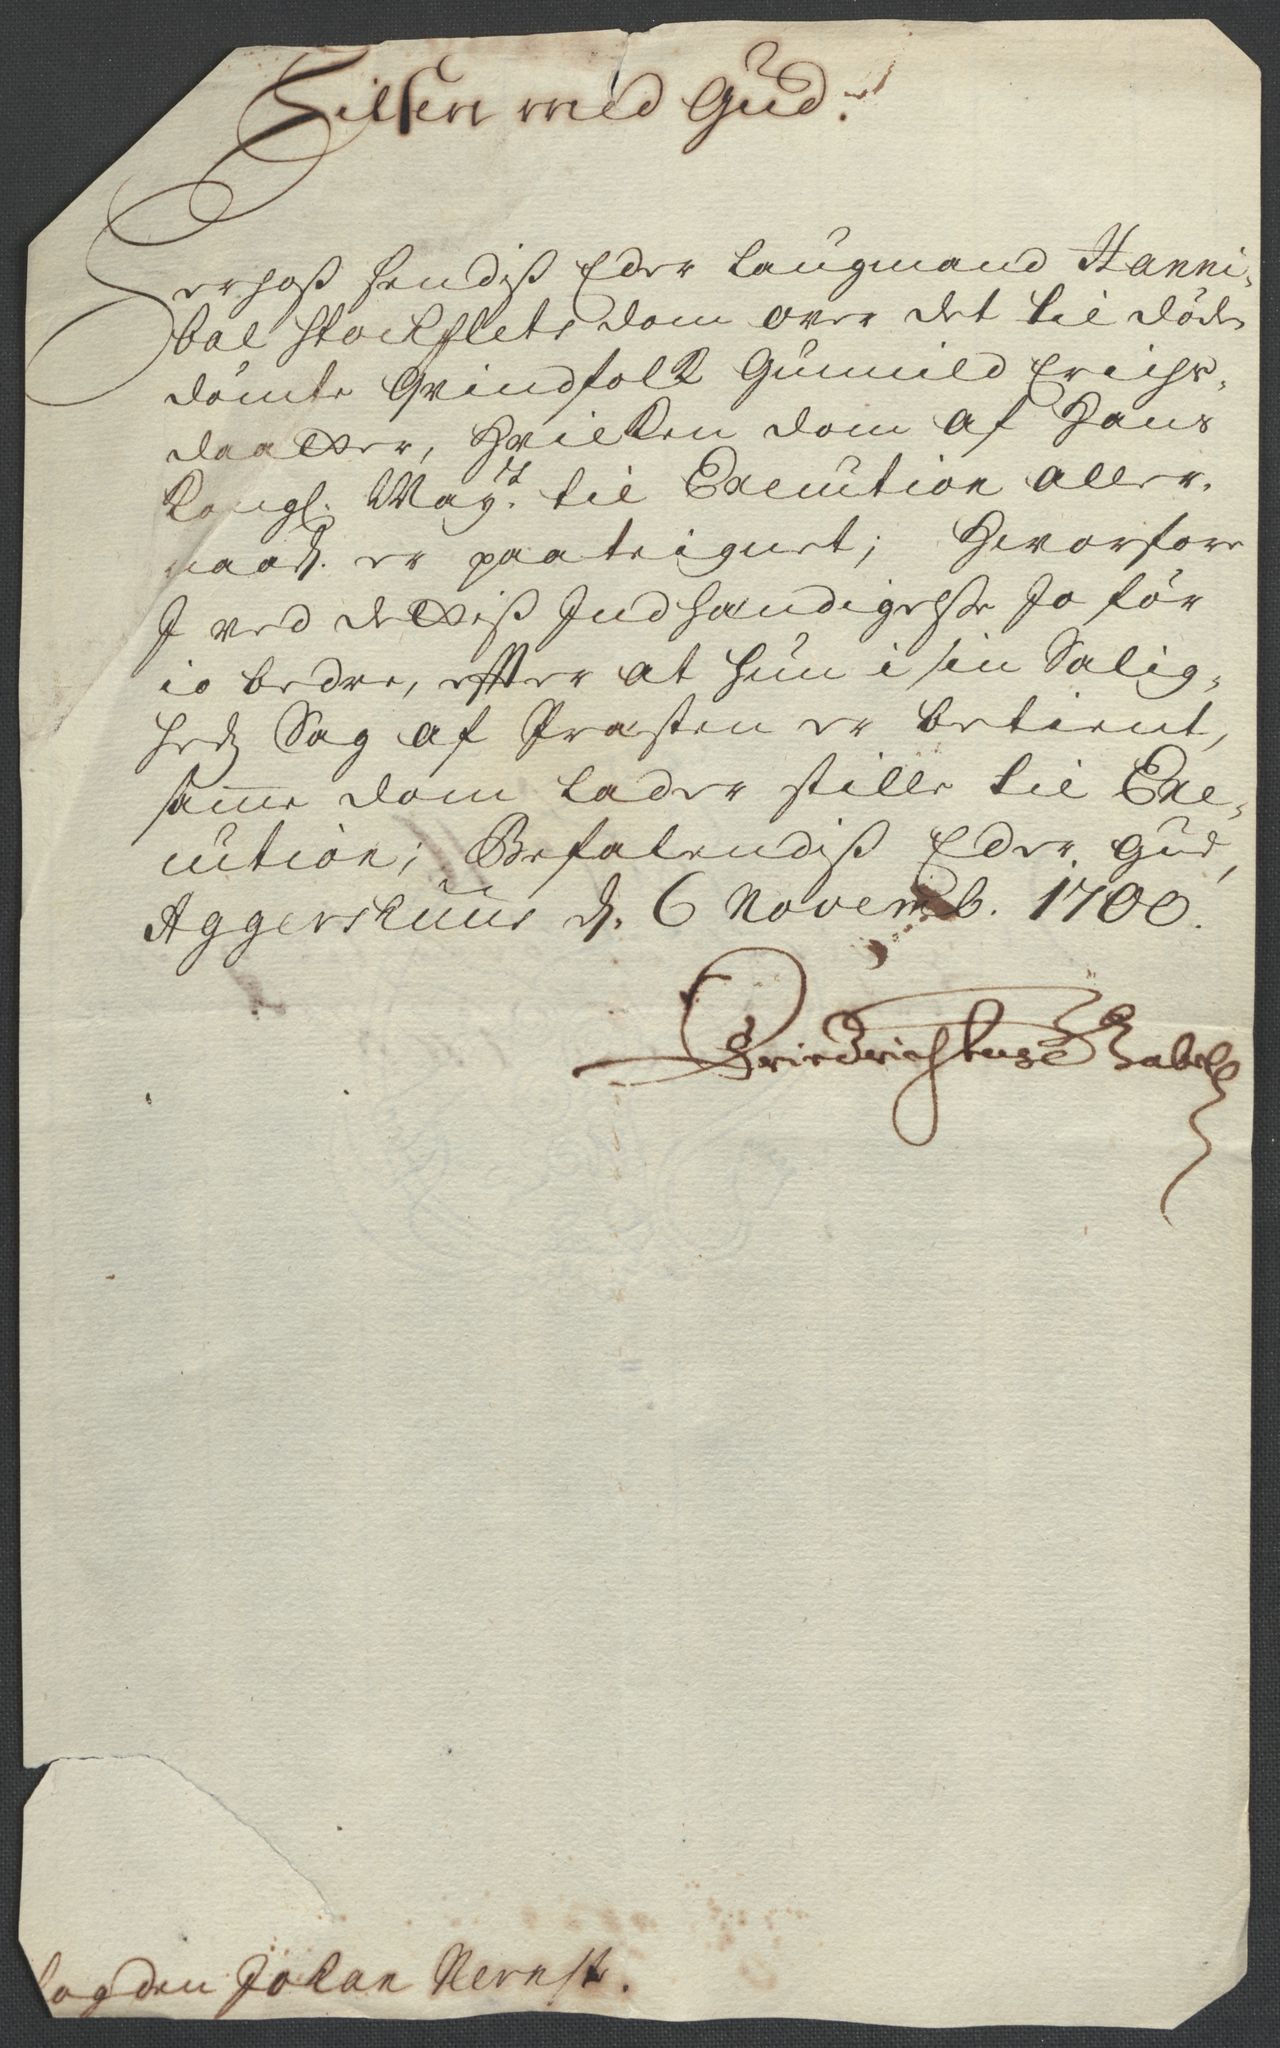 Hilsen med Gud.
Herhoß sendiß Eder Laugmand Hanni-
bal Stockflets dom over det til döde
dömte Qvindfolk Gunnild Erichs-
daatter, Hvilken dom af Hans
Kongl. May.t til Execution aller-
naad. er paateignet; Hvorfore
I ved dettiß Indhændigelse jo för
jo bedre, effter at hun i sin Salig-
hedz Sag af Præsten er betient,
samme dom lader stille til Exe-
cution; Befalendiß Eder Gud,
Aggershuus d. 6 Novemb. 1700.
Friedrich Gabel
Fogden Johan Nernst.